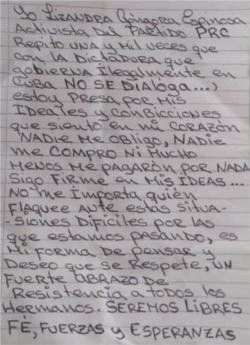 Yo Lizandra Góngora Espinosa
Activista Del Partido PRC
Repito UNA y Mil veces que
con la Dictadura que
gobierna Ilegalmente en
Cuba NO SE Dialoga...)
estoy presa por mis
Ideales y combicciones
que siento en mi corazón
Nadie me obligo, Nadie
me compro Ni mucho
menos me pagarón por nada
sigo Firme en mis IDEAS...
No me Importa quién
Flaquee ante estas situa-
-siones Difíciles por las
que estamos pasando, es
Mi forma de pensar y
Deseo que se Respete, UN
Fuerte Abrazo de
Resistencia a todos los
Hermanos. SEREMOS LIBRES
FÉ, FUERZAS y ESPERANZAS